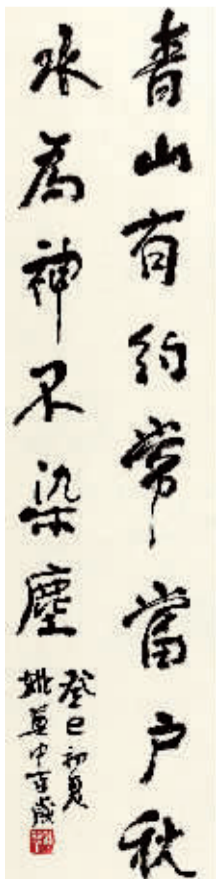 青山有约常當户秋
水為神不染塵
癸巳初夏
姚奠中百歲